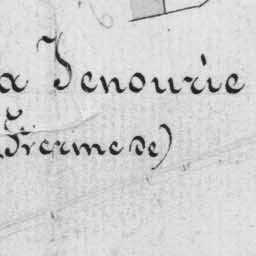 a Jenourie
(Ferme de)